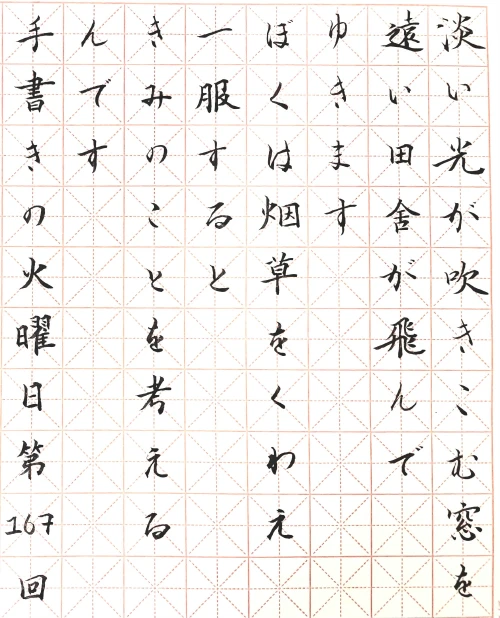 淡い光が吹きこむ窓を
遠い田舎が飛んで
ゆきます
ぼくは烟草をくわえ
一服すると
きみのことを考える
んです
手書きの火曜日第167回